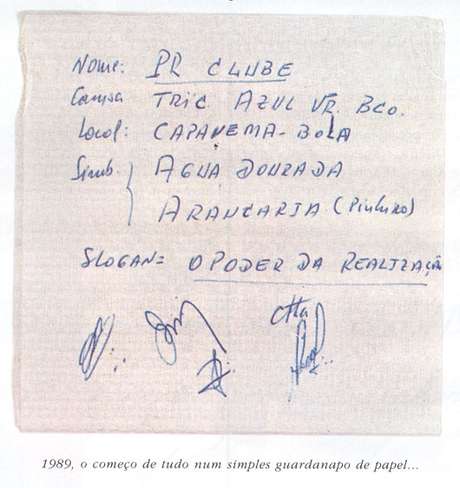 Nome: PR CLUBE
Camisa TRIC AZUL VR. BCO.
Local: CAPANEMA-BOLA
Simb. AGUA DOURADA
ARAUCARIA (Pinheiro)
SLOGAN= O PODER DA REALIZAÇÃO
1989, o começo de tudo num simples guardanapo de papel...